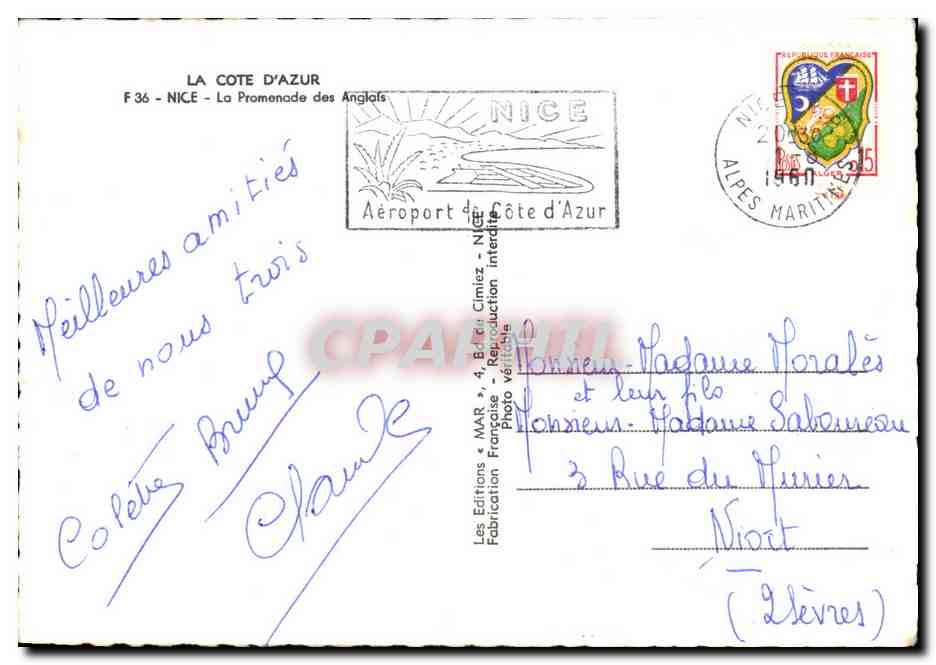 LA COTE D'AZUR
F 36 - NICE - La Promenade des Anglais
NICE
Aéroport de Côte d'Azur
REPUBLIQUE FRANÇAISE
POSTES
ALGER
0,15
NICE
20H30
1960
ALPES MARITIMES
Meilleures amitiés
de nous trois
Colette Bruny
Claude
Les Editions « MAR », 4, Bd. de Cimiez - NICE
Fabrication Française - Reproduction interdite
Photo véritable
CPARAMA
Monsieur-Madame Moralès
et leur fils
Monsieur-Madame Saboureau
3 Rue du Murier
Niort
(2 Sèvres)